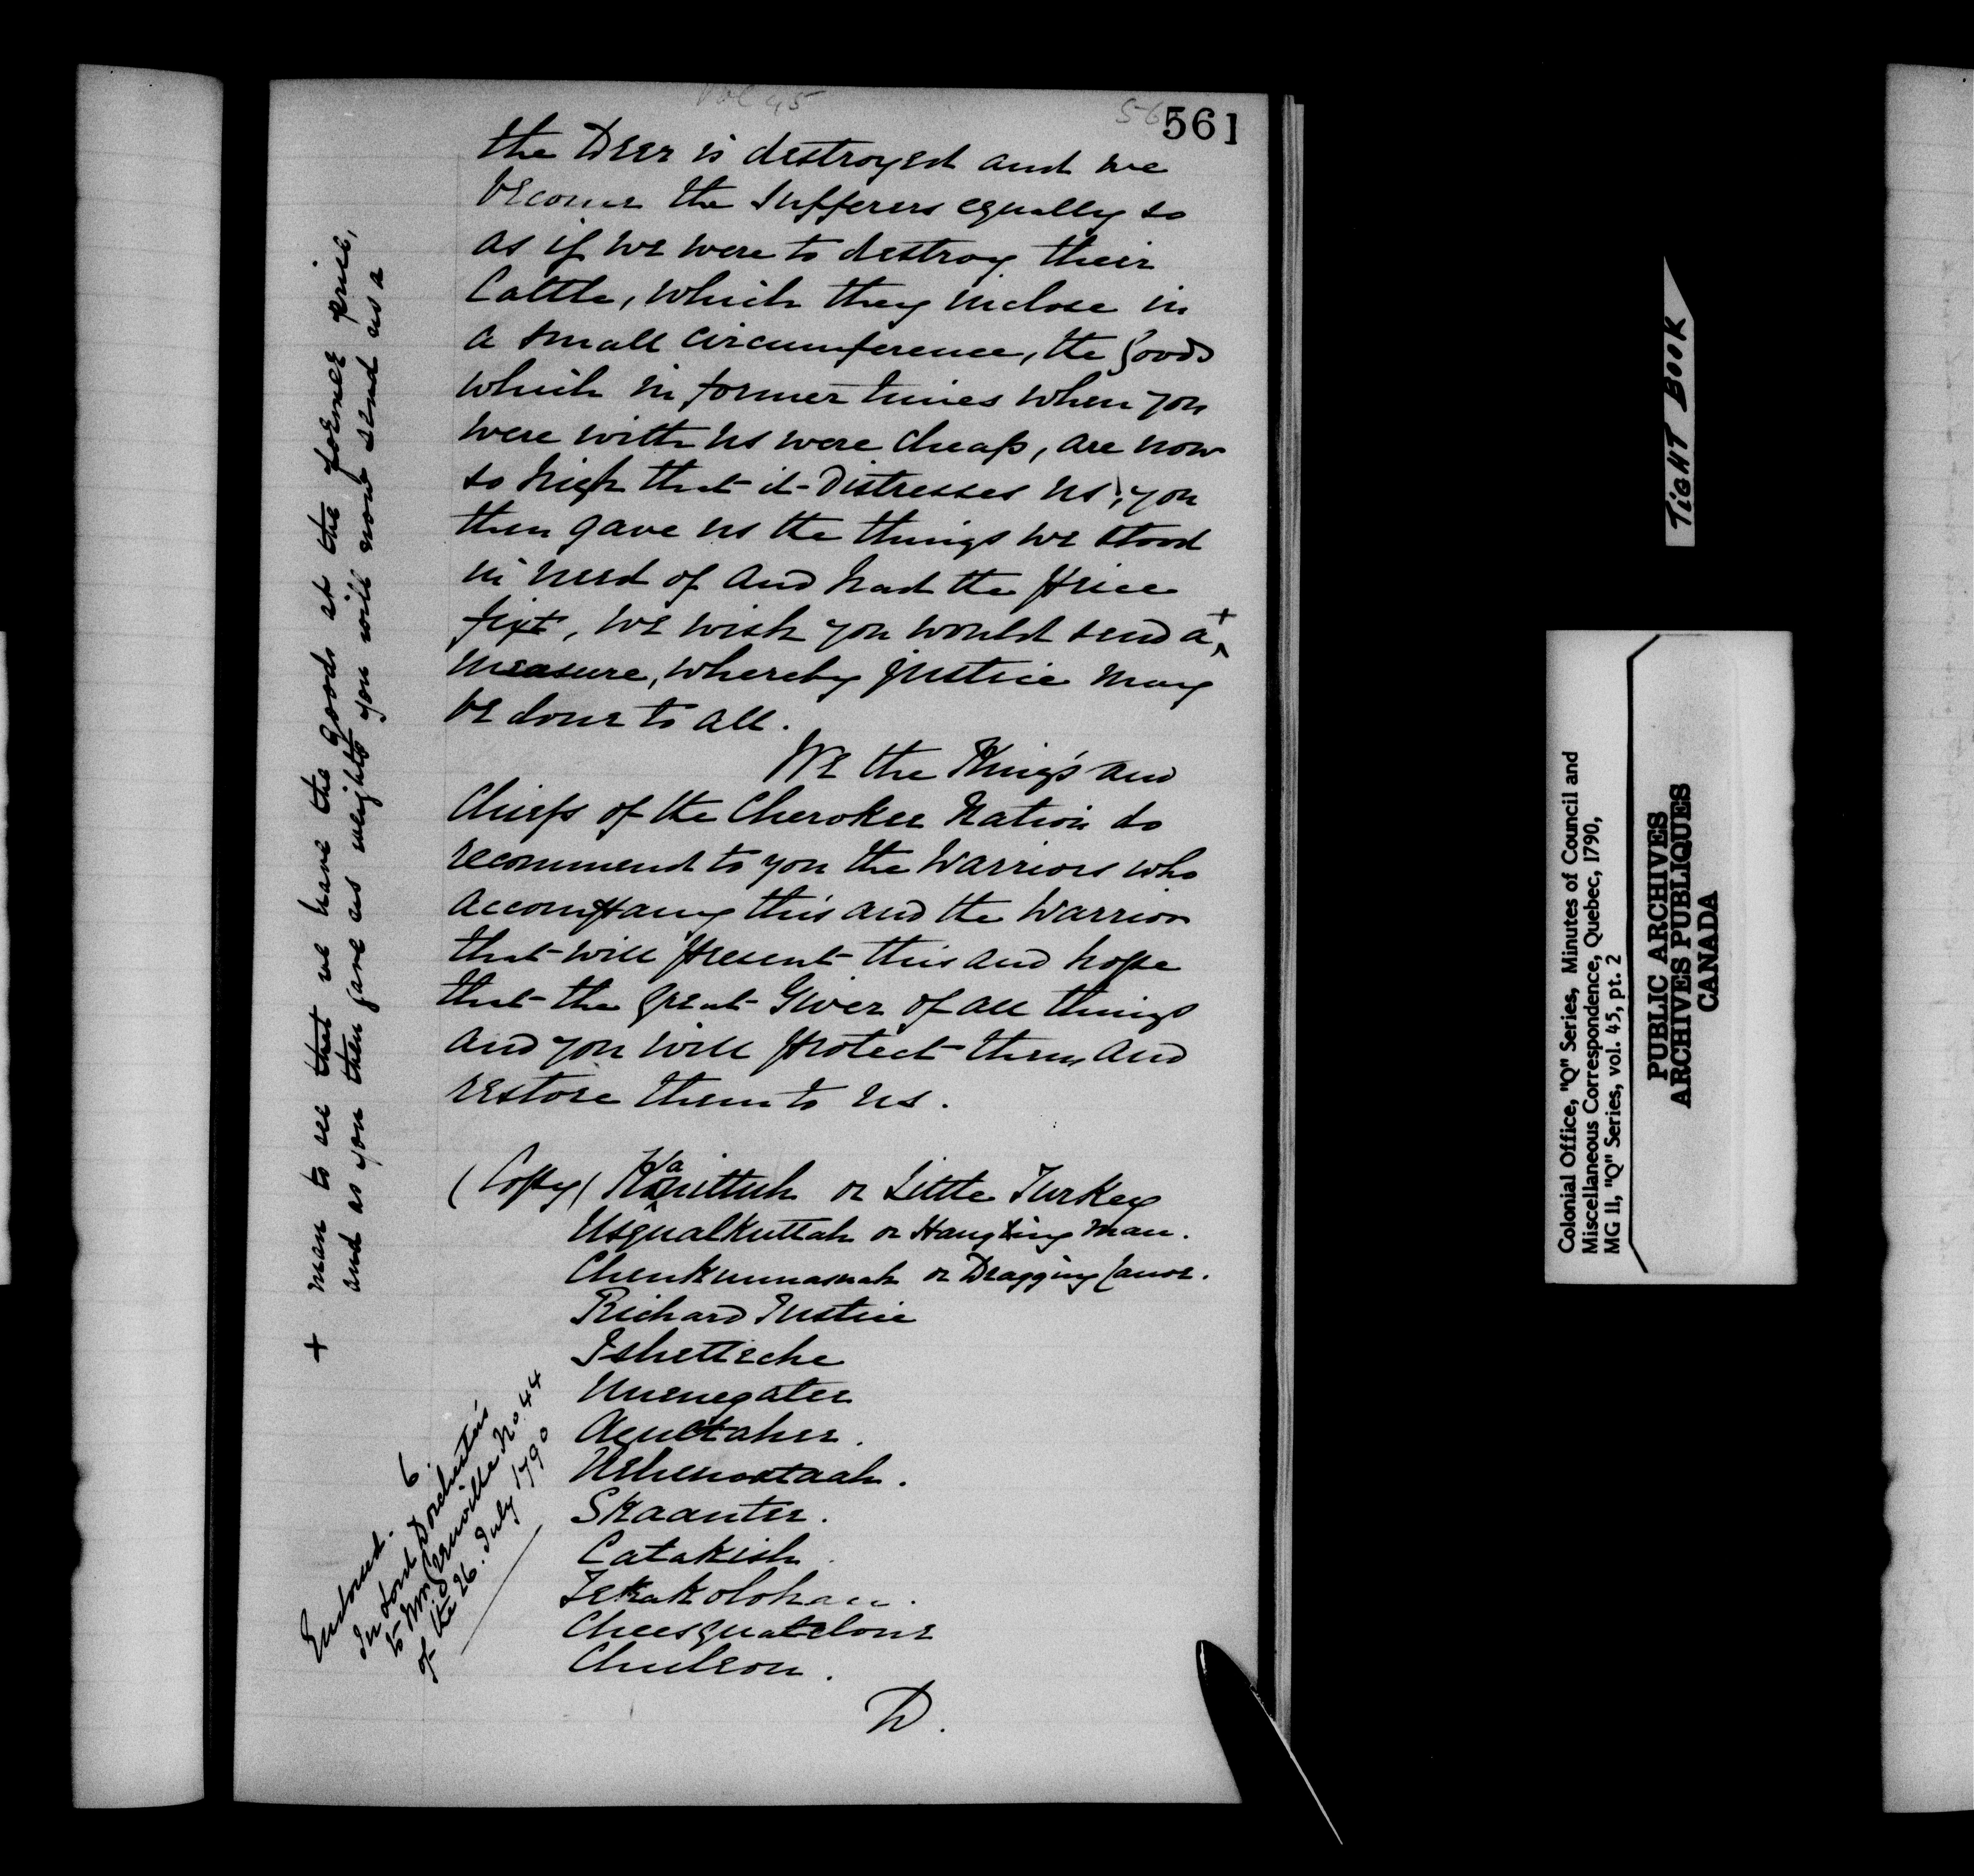 Vol 45
561
the Deer is destroyed and we
become the Sufferers equally so
as if we were to destroy their
Cattle, which they inclose in
a small circumference, the Goods
which in former times when you
were with us were cheap, are now
so high that it distresses us; you
then gave us the things we stood
in need of and had the price
fixt, we wish you would send a +
measure, whereby justice may
be done to all.
We the King's and
Chiefs of the Cherokee Nation do
recommend to you the Warriors who
accompany this and the Warrior
that will present this and hope
that the great Giver of all things
and you will protect them and
restore them to us.
(Copy) or Little Turkey
Usqualkuttah or Hanging Man.
or Dragging Canoe.
Richard Justice
Ishetteche
Unenegatee
Skaantee.
Catakish
Cheesquatelone
Chuleon.
D.
+ man to see that we have the goods at the former price,
and as you then gave us weights you will now send us a
Endorsed. 6.
In Lord Dorchester's
to Mr Grenville No 44
of the 26. July 1790
TIGHT BOOK
Colonial Office, "Q" Series, Minutes of Council and
Miscellaneous Correspondence, Quebec, 1790,
MG II, "Q" Series, vol. 45, pt. 2
PUBLIC ARCHIVES
ARCHIVES PUBLIQUES
CANADA